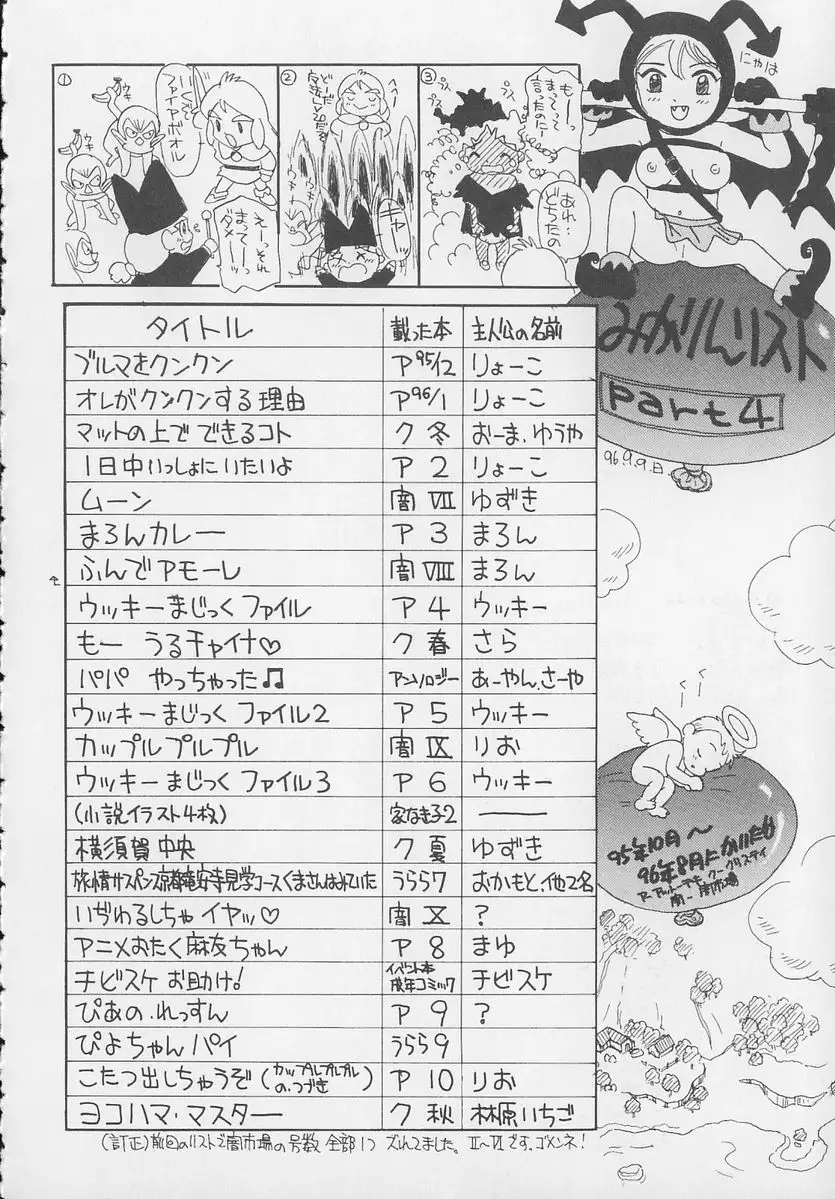 ①
ウキ
ウキ
いくぞー
ファイヤボオル
えーっそれ
まってーっ
ダメーっ
②
どーだ
魔法Lv20だろ
へへー
ギャッ
③
もーっ
まってって
言ったのにー
おれ…
どちたの
にゃは
みかりんリスト
part4
96.9.9.日
タイトル 載った本 主人公の名前
ブルマをクンクン ア95/12 りょーこ
オレがクンクンする理由 ア96/1 りょーこ
マットの上で できるコト ク 冬 おーま、ゆうや
1日中いっしょにいたいよ ア 2 りょーこ
ムーン 闇 VII ゆずき
まろんカレー ア 3 まろん
ふんでアモーレ 闇 VIII まろん
ウッキーまじっく ファイル ア 4 ウッキー
もー うるチャイナ♡ ク 春 さら
パパ やっちゃった♫ アンソロジー あーやん、さーや
ウッキーまじっく ファイル2 ア 5 ウッキー
カップルプルプル 闇 IX りお
ウッキーまじっく ファイル3 ア 6 ウッキー
(小説イラスト4枚) 家なき子2 ――
横須賀 中央 ク 夏 ゆずき
旅情サスペンス京都竜安寺見学コースくまさんはみていた うらら7 おかもと、他2名
いぢわるしちゃ イヤッ♡ 闇 X ?
アニメおたく麻友ちゃん ア 8 まゆ
チビスケ お助け! イベント本 成年コミック チビスケ
ぴあの.れっすん ア 9 ?
ぴよちゃんパイ うらら9
こたつ出しちゃうぞ (カップルプルプルのつづき) ア 10 りお
ヨコハマ・マスター ク 秋 林原いちご
(訂正)前回のリストで闇市場の号数 全部1つ ズレてました。II～VIです、ゴメンネ!
95年10月～
96年8月にかいたもの
ア－アットーテキ ク－クリスティ
闇－闇市場